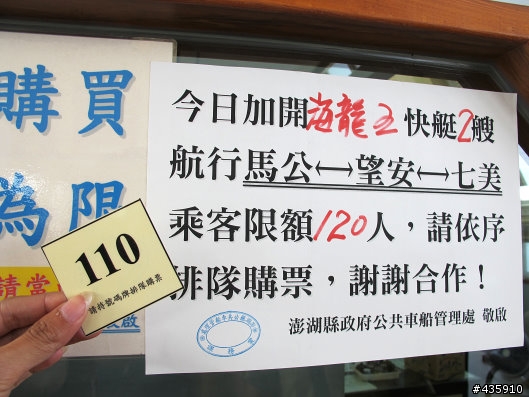 購買
為限
今日加開海龍王快艇2艘
航行馬公↔望安↔七美
乘客限額120人，請依序
排隊購票，謝謝合作！
澎湖縣政府公共車船管理處 敬啟
110
請持號碼牌排隊購票
請當
敬啟
#435910